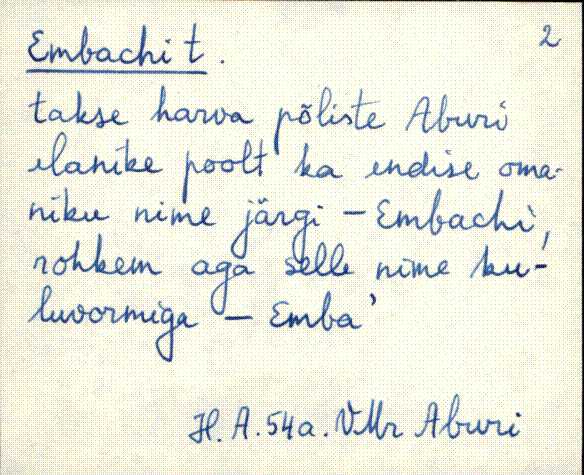 Embachi t. 2
takse harva põliste Aburi
elanike poolt ka endise oma-
niku nime järgi – Embachi,
rohkem aga selle nime ku-
luvormiga – Emba'
H. A. 54a. VMr Aburi